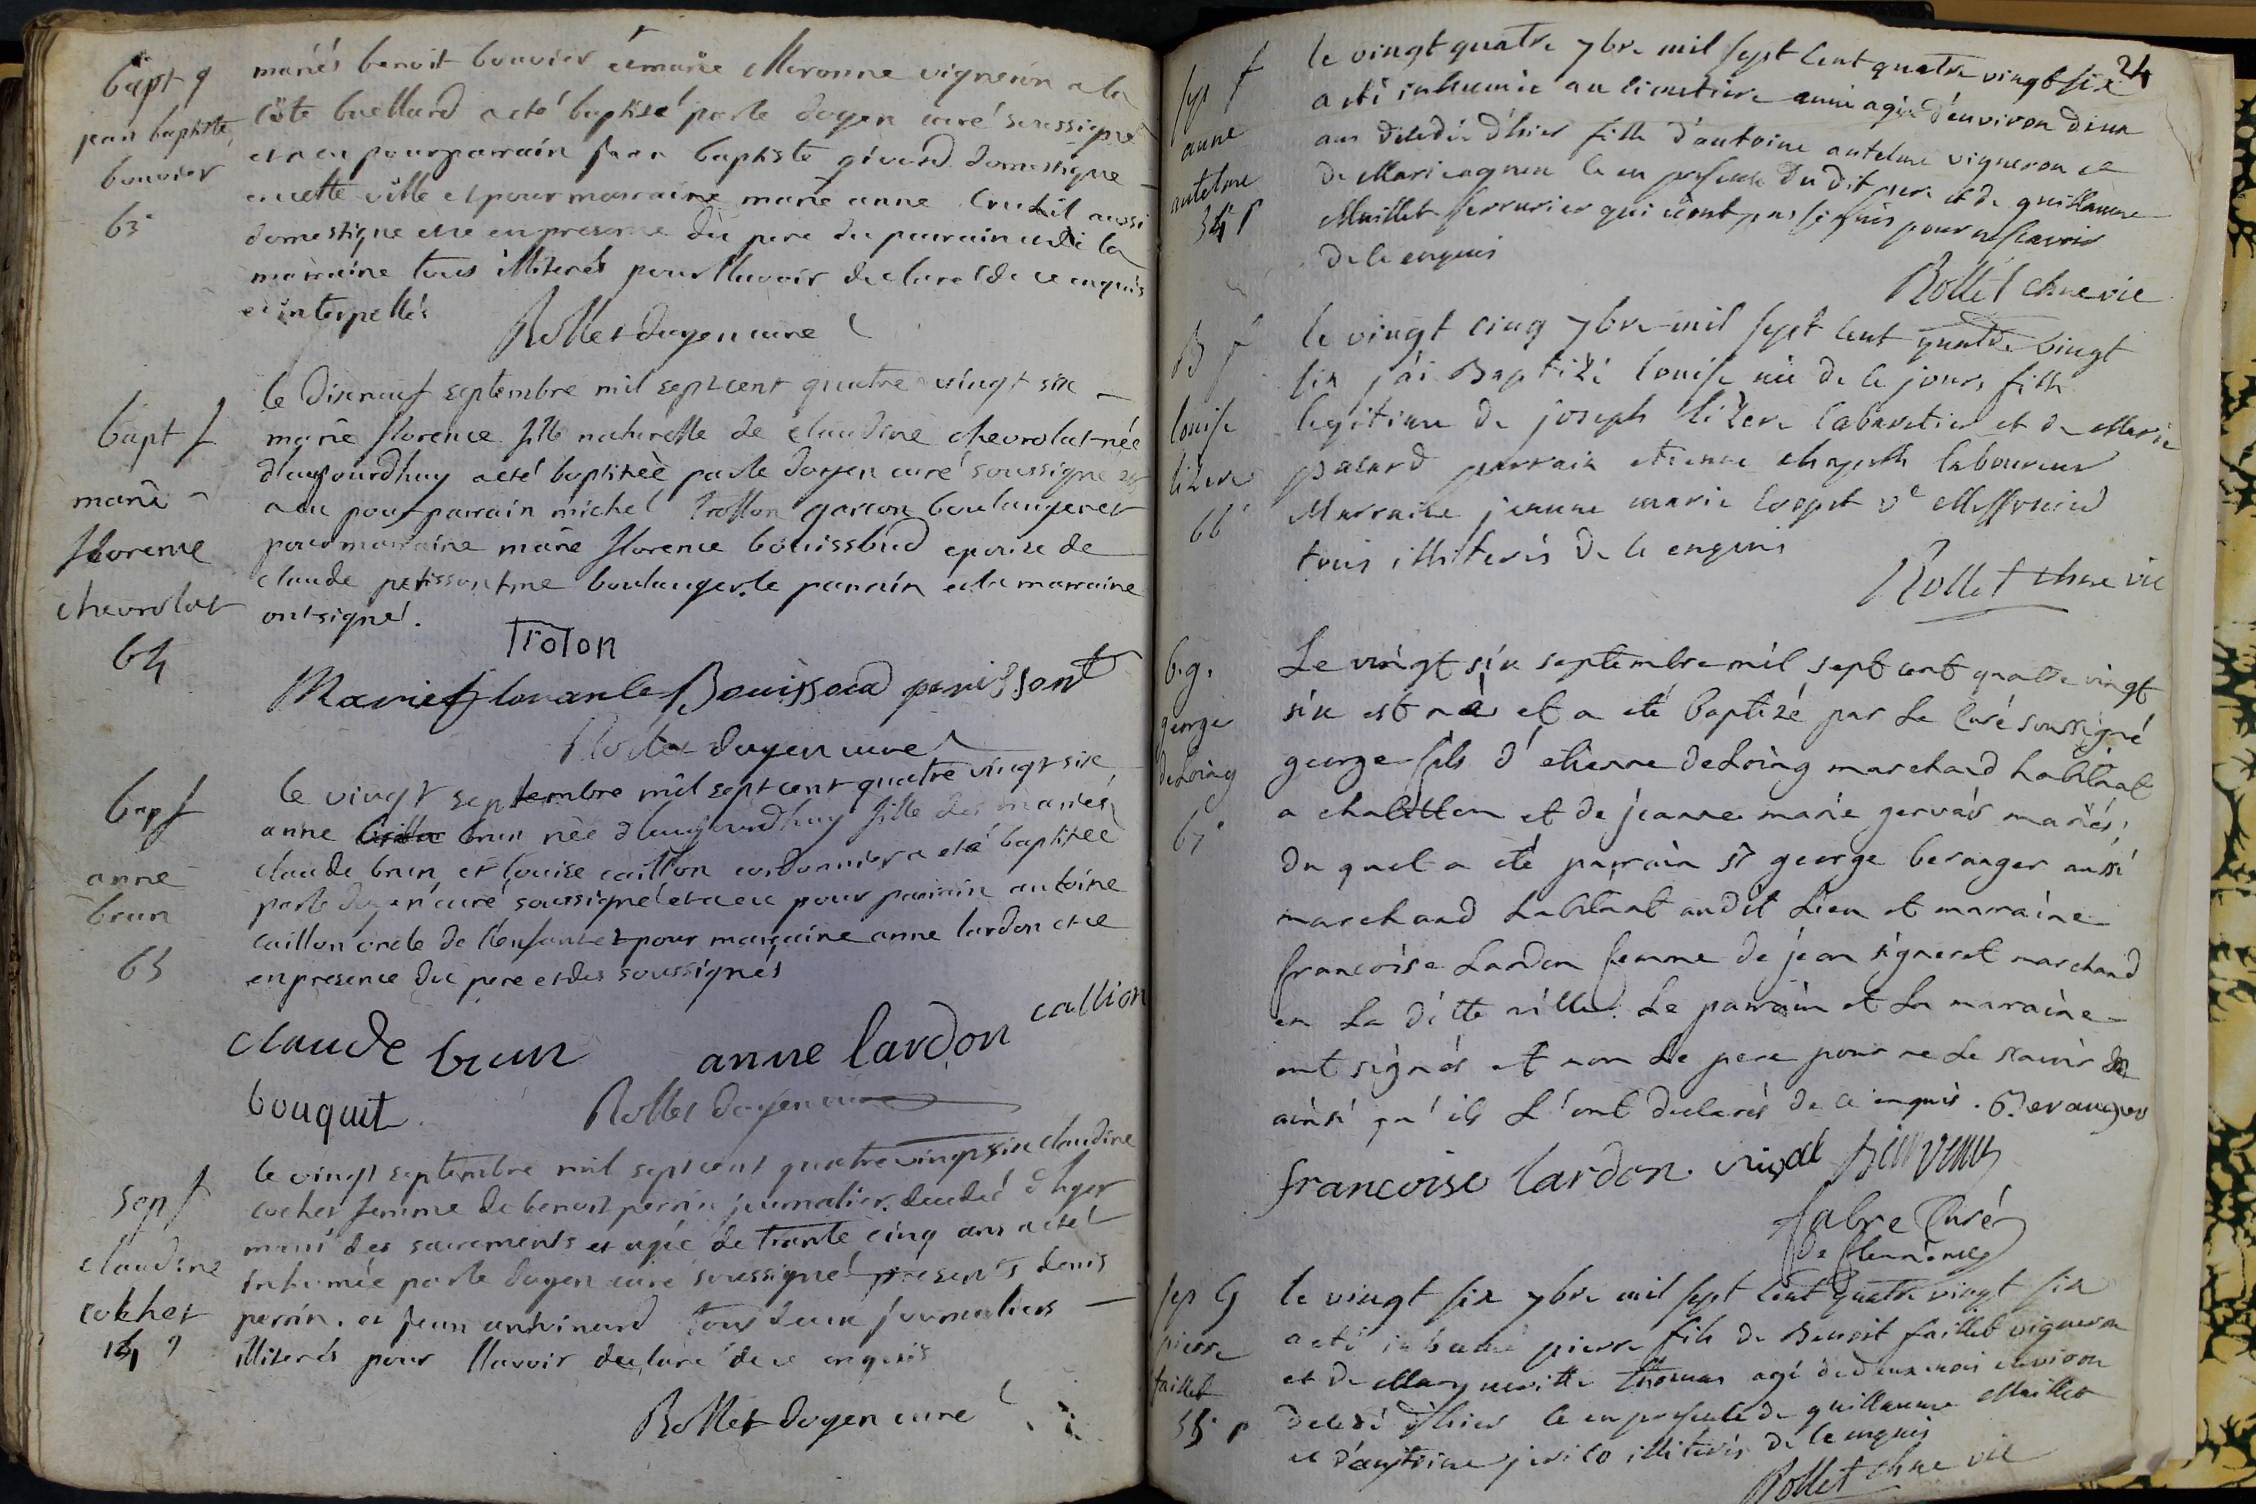 bapt g
jean baptiste
bouvier
63
mariés benoit bouvier et marie Meronne vigneron a la
côte buellard a eté baptisé par le doyen curé soussigné
et a eu pour parrain jean baptiste girard domestique
en cette ville et pour marraine marie anne aussi
domestique et ce en presence du pere du parrain et de la
marraine tous illiterés pour l'lavoir declaré de ce enquis
et interpellés
Rollet doyen curé
bapt f
marie
florence
chevrolat
64
le disneuf septembre mil sept cent quatre vingt six
marie florence fille naturelle de claudine chevrolat née
d'aujourdhuy a eté baptisée par le doyen curé soussigné et
a eu pour parrain michel trollon garcon boulanger et
pour marraine marie florence bouissoud epouse de
claude perissont me boulanger. le parrain et la marraine
ont signé.
Troton
Marie flouranse Bouissoud perissont
Rollet doyen curé
bap f
anne
brun
65
le vingt septembre mil sept cent quatre vingt six
anne brun née d'aujourdhuy fille des mariés
claude brun et louise caillon cordonnier a eté baptisée
par le doyen curé soussigné et a eu pour parrain antoine
caillon oncle de l'enfant et pour marraine anne lardon et ce
en presence du pere et des soussignés
claude brun anne lardon callion
bouquet Rollet doyen curé
sep f
claudine
cochet
14
le vingt septembre mil sept cent quatre vingt six claudine
cochet femme de benoit perrin journalier decedé d'hyer
muni des sacrements et agée de trante cinq ans a eté
inhumée par le doyen curé soussigné presents denis
perrin. et jean antoinard tous deux journaliers
illiterés pour l'lavoir declaré de ce enquis
Rollet doyen curé
24
sep f
anne
antelme
34 p
le vingt quatre 7bre mil sept cent quatre vingt six
a eté inhumée au cimetiere anne agée d'environ d'un
an decedée d'hier fille d'antoine antelme vigneron et
de Marie ce en presence du dit pere et de guillaume
Maillet serrurier qui n'ont pas signés pour ne scavoir
de ce enquis
Rollet chne vic
B f
louise
lizere
66
le vingt cinq 7bre mil sept cent quatre vingt
six j'ai Baptizé louise née de ce jours fille
legitime de joseph lizere cabaretier et de Marie
pacard parrain etienne laboureur
Marraine jeanne marie ve
tous illiterés de ce enquis
Rollet chne vic
b. g.
george
deLoing
67
Le vingt six septembre mil sept cent quatre vingt
six est né et a eté baptizé par Le Curé soussigné
george fils d'etienne deLoing marchand habitant
a chatillon et de jeanne marie gervais mariés,
du quel a eté parrain sr george beranger aussi
marchand habitant audit Lieu et marraine
francoise Lardon femme de jean signeret marchand
en La ditte ville. Le parrain et La marraine
ont signés et non Le pere pour ne Le scavoir
ainsi qu'ils L'ont declarés de ce enquis. G. beranger
francoise lardon
fabre Curé
de
sep G
pierre
faillet
35 p
le vingt six 7bre mil sept cent quatre vingt six
a eté inhumé pierre fils de Benoit faillet vigneron
et de Margueritte thomas agé de deux mois environ
decedé d'hier ce en presence de guillaume Maillet
et d'antoine illiterés de ce enquis
Rollet chne vic